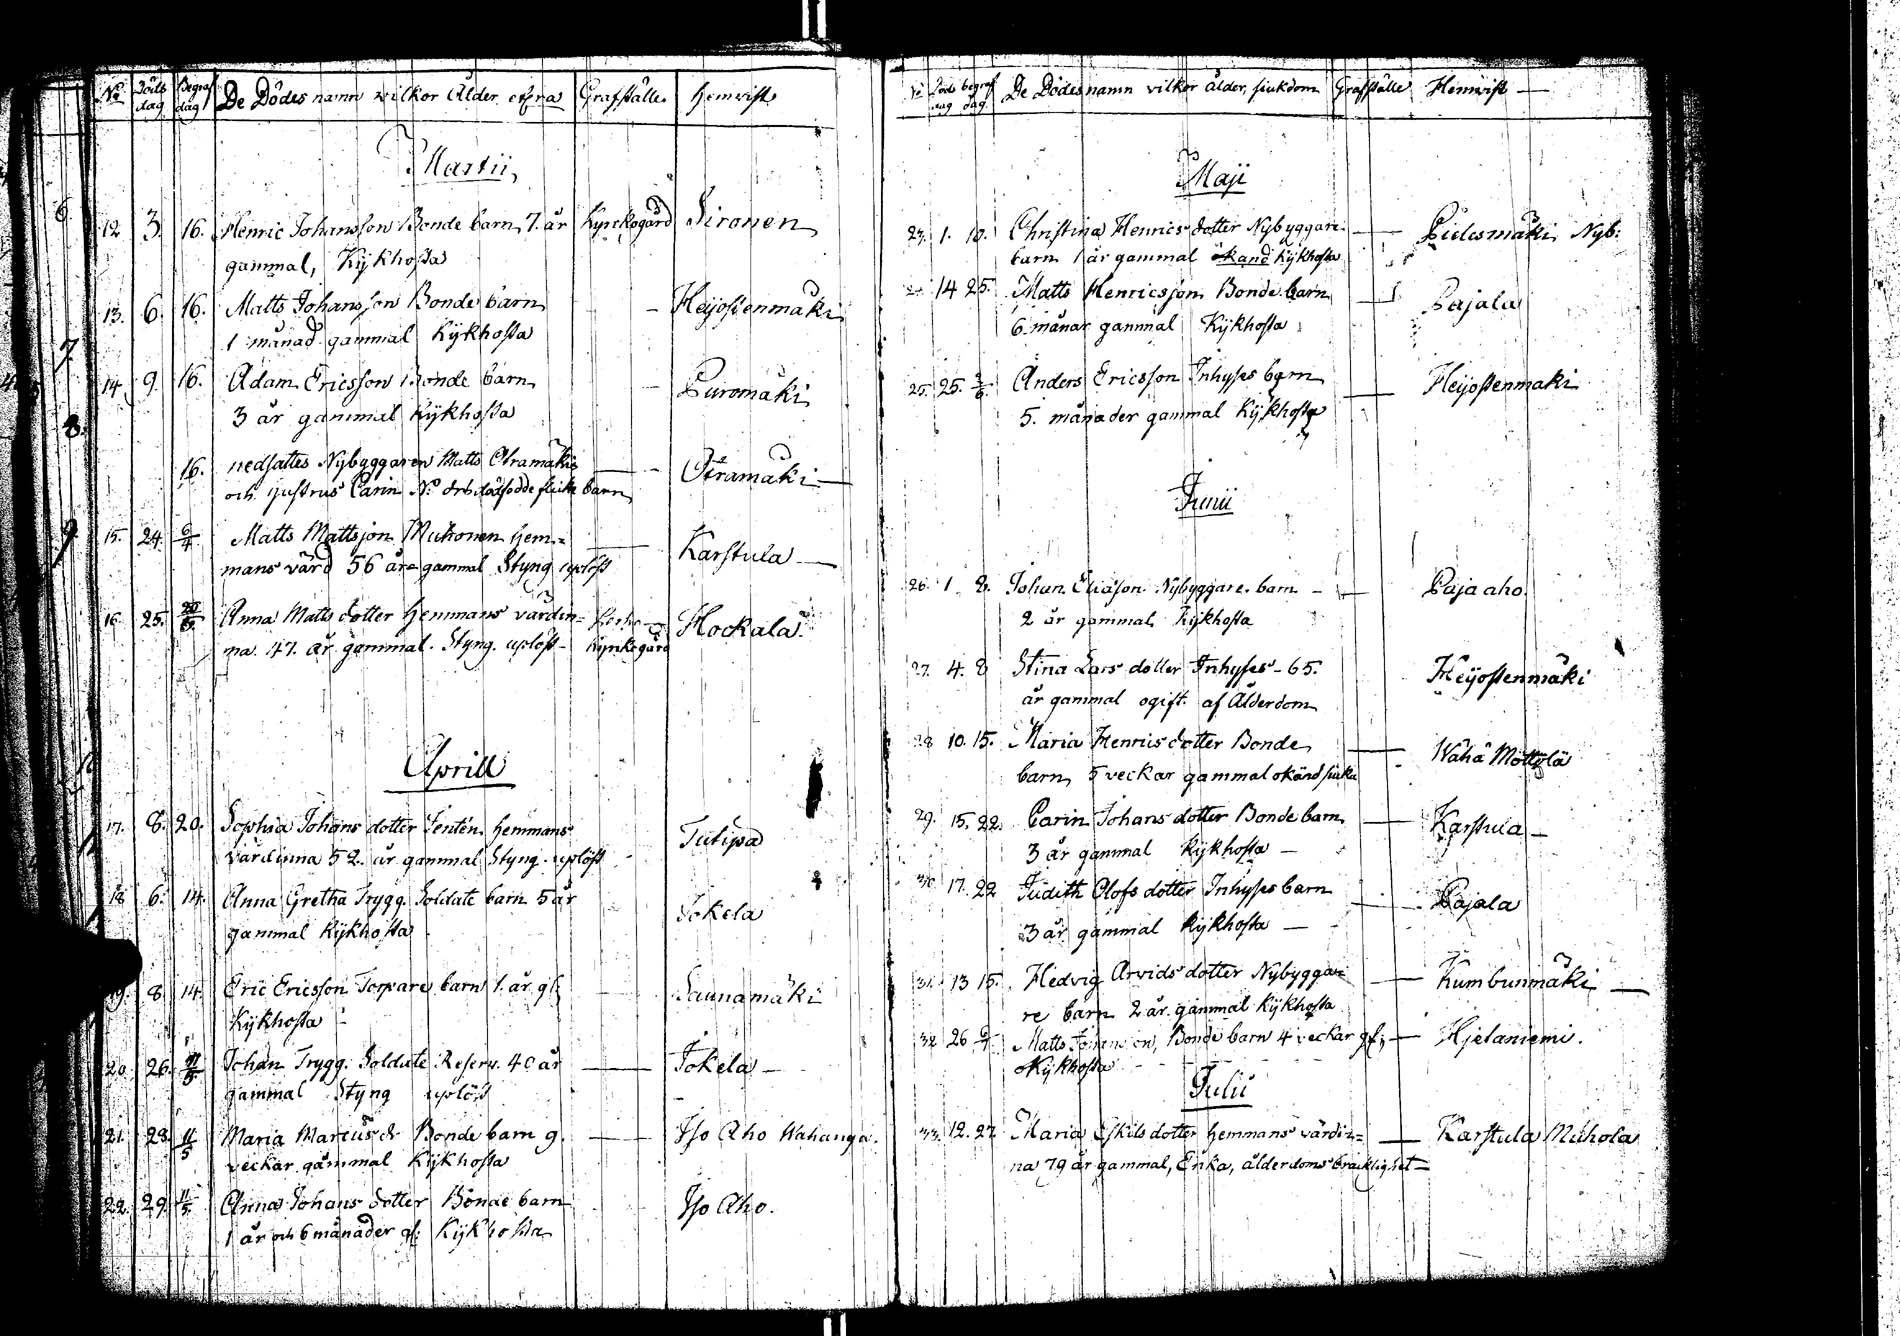 No Döds dag Begraf dag De Dödes namn vilkor Ålder etfra Grafställe Hemvist
Martii
12 3. 16. Henric Johansson Bonde barn 7. år Kyrckogård Sironen
gammal, Kijkhosta
13. 6. 16. Matts Johansson Bonde barn Heijostenmäki
1 månad gammal Kijkhosta
14. 9. 16. Adam Ericsson Bonde barn Puromäki
3 år gammal Kijkhosta
16. nedsattes Nybyggaren Matts Otramäkis Otramäki
och hustrus Carin dödfödde flicke barn
15. 24 6/4 Matts Mattsson Muhonen hem= Karstula
mans värd 56 år gammal Styng uplöst
16 25. Anna Matts dotter Hemmans värdin= Hockala
na 47. år gammal. Styng. uplöst Kyrckogård
Aprill
17. 8. 20. Sophia Johans dotter Hemmans
värdinna 52. år gammal Styng uplöst
18 6. 14. Anna Gretha Trygg. Soldate barn 5 år Tokela
gammal Kijkhosta
19. 8. 14. Eric Ericsson Torpare barn 1. år gl; Saunamäki
Kijkhosta
20. 26. Johan Trygg. Soldate Reserv. 40 år Tokela
gammal Styng uplöst
21. 28. 11/5 Maria Marcus dr Bonde barn 9. Iso Aho Wahanga.
veckar gammal Kijkhosta
22. 29. 11/5 Anna Johans dotter Bonde barn Iso Aho.
1 år och 6 månader gl; Kijkhosta
No Döds dag begraf dag De Dödes namn vilkor ålder, siukdom Grafställe Hemvist
Maji
23. 1. 10. Christina Henrics dotter Nybyggare Piilesmäki Nyb:
barn 1 år gammal okänd Kijkhosta
14 25. Matts Henricsson Bonde barn Pajala
6. månar gammal Kijkhosta
25. 25. Anders Ericsson Inhyses barn Heijostenmäki
5. månader gammal Kijkhosta
Junii
26. 1. 8. Johan Eliason Nybyggare. barn Paja aho.
2 år gammal Kijkhosta
27. 4. 8 Stina Lars dotter Inhyses 65. Heijostenmäki
år gammal ogift. af Ålderdom
28 10. 15. Maria Henrics dotter Bonde Wähä Möttölä
barn, 5 veckar gammal okänd siuka
29. 15. 22. Carin Johans dotter Bonde barn Karstula
3 år gammal Kijkhosta
30 17. 22 Judith Olofs dotter Inhyses barn Pajala
3 år gammal Kijkhosta
31. 13 15. Hedvig Arvids dotter Nybygga= Kumbunmäki
re barn 2 år gammal Kijkhosta
32 26 6/7 Matts Bonde barn 4 veckar gl; Hjetaniemi.
Kijkhosta
Julii
33. 12. 27. Maria Eskils dotter Hemmans värdin= Karstula Muhola
na 79 år gammal, Enka, ålderdoms bräcklighet